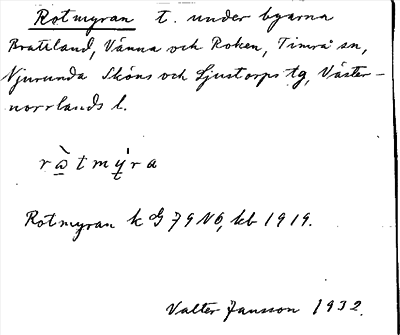 Rotmyran t. under byarna
Brattland, Vänna och Roken, Timrå sn,
Njurunda Sköns och Ljustorps tg, Väster-
norrlands l.
rɷ̀tmýra
Rotmyran k G 79 NÖ, kb 1919.
Valter Jansson 1932.